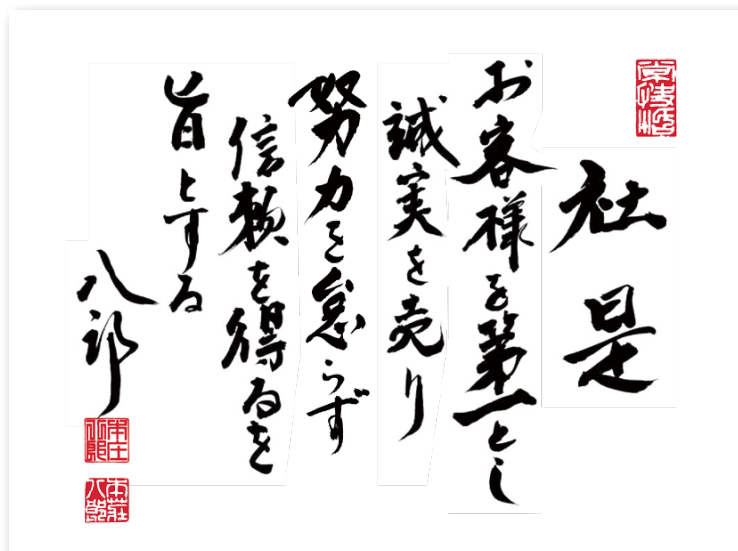 社是
お客様を第一とし
誠実を売り
努力を怠らず
信頼を得るを
旨とする
八郎
本庄
八郎
本莊
八郎